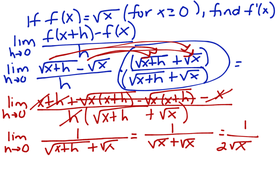 If f(x) = √x (for x ≥ 0), find f'(x)
lim h→0 (f(x+h) - f(x))/h
lim h→0 (√(x+h) - √x)/h · (√(x+h) + √x)/(√(x+h) + √x) =
lim h→0 (x+h + √(x(x+h)) - √(x(x+h)) - x)/(h(√(x+h) + √x))
lim h→0 1/(√(x+h) + √x) = 1/(√x + √x) = 1/(2√x)